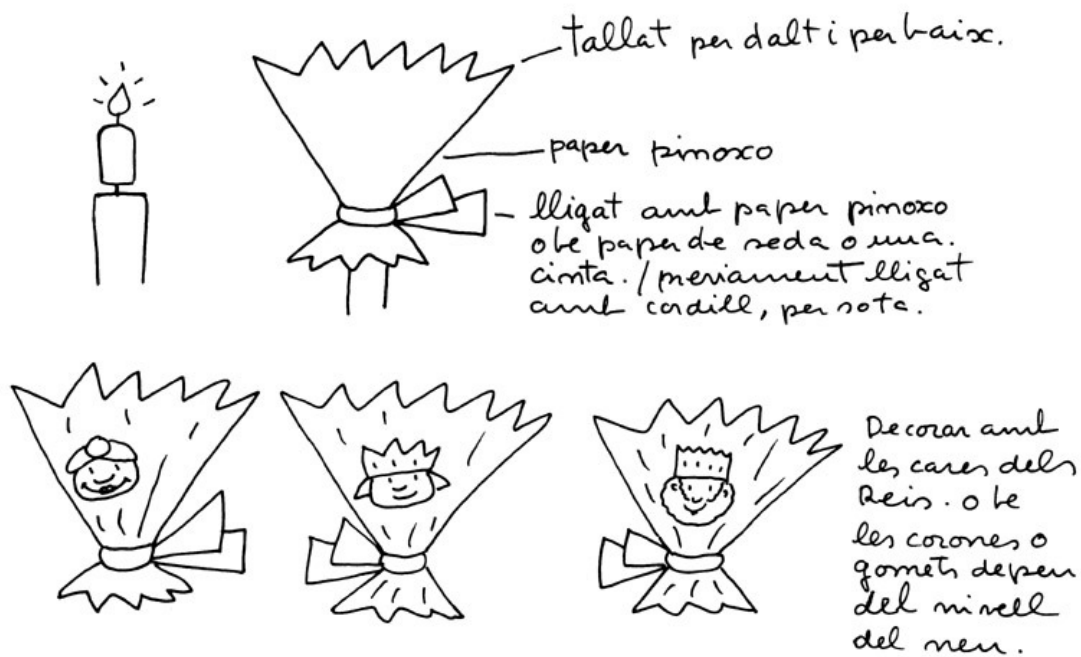 tallat per dalt i per baix.
paper pinoxo
lligat amb paper pinoxo
o be paper de seda o una.
cinta. / previament lligat
amb cordill, per sota.
Decorar amb
les cares dels
Reis. o be
les corones o
gomets depen
del nivell
del nen.